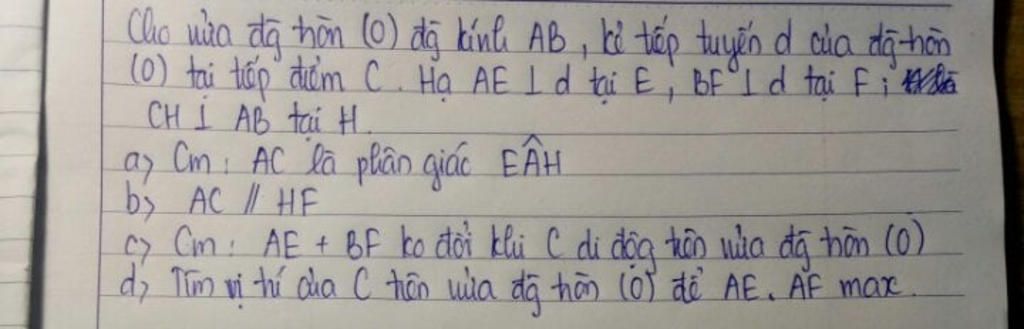 Cho nửa đg tròn (O) đg kính AB, kẻ tiếp tuyến d của đg tròn
(O) tại tiếp điểm C. Hạ AE ⊥ d tại E, BF ⊥ d tại F;
CH ⊥ AB tại H.
a) Cm: AC là phân giác EÂH
b) AC // HF
c) Cm: AE + BF ko đổi khi C di độg trên nửa đg tròn (O)
d) Tìm vị trí của C trên nửa đg tròn (O) để AE. AF max.